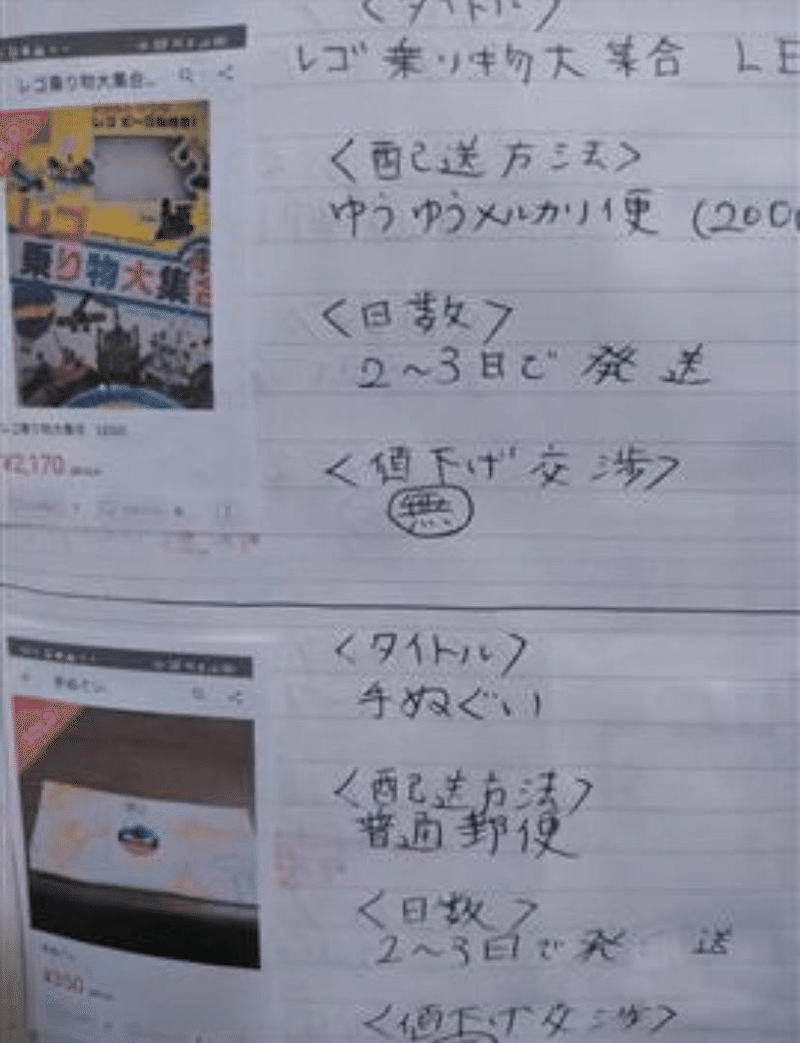 <タイトル>
レゴ乗り物大集合 LE
<配送方法>
ゆうゆうメルカリ便 (200
<日数>
2～3日で発送
<値下げ交渉>
無
レゴ乗り物大集合...
レゴ
乗り物大集合
レゴ乗り物大集合 LEGO
¥2,170
<タイトル>
手ぬぐい
<配送方法>
普通郵便
<日数>
2～3日で発送
<値下げ交渉>
手ぬぐい
¥350